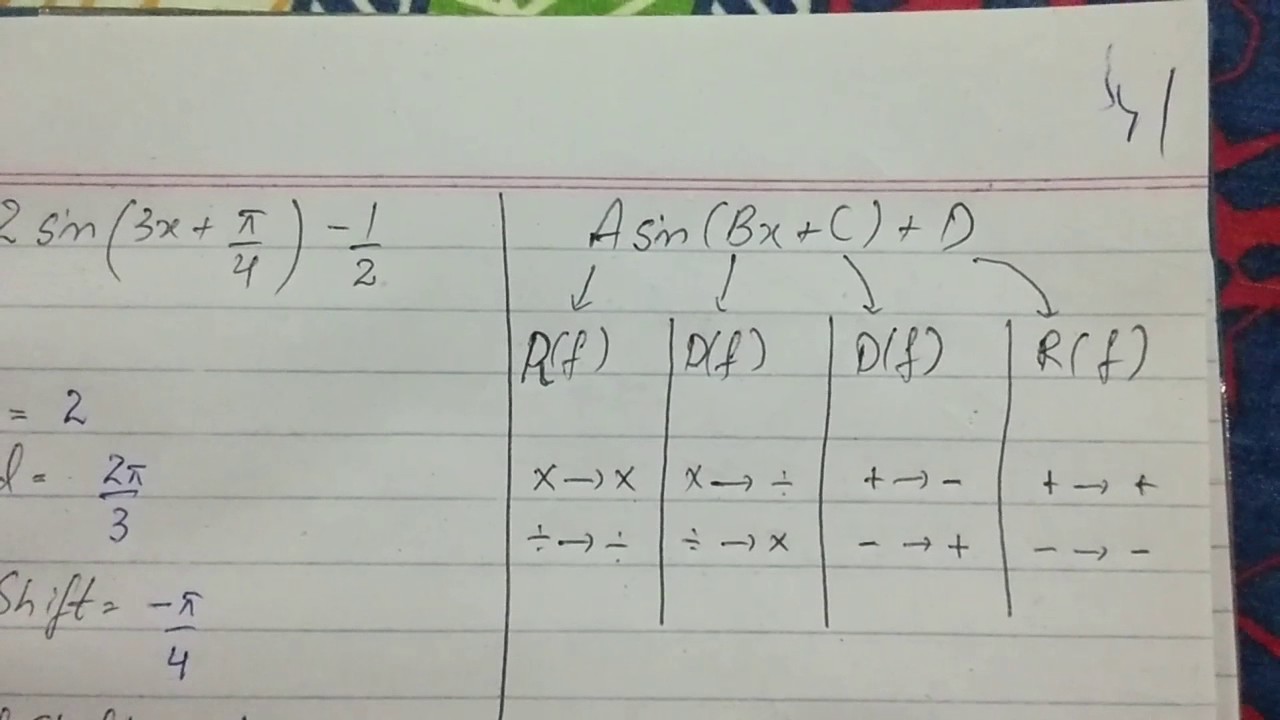 2 sin(3x + π/4) - 1/2
= 2
= 2π/3
Shift = -π/4
A sin(Bx + C) + D
R(f) D(f) D(f) R(f)
× → × × → ÷ + → - + → +
÷ → ÷ ÷ → × - → + - → -